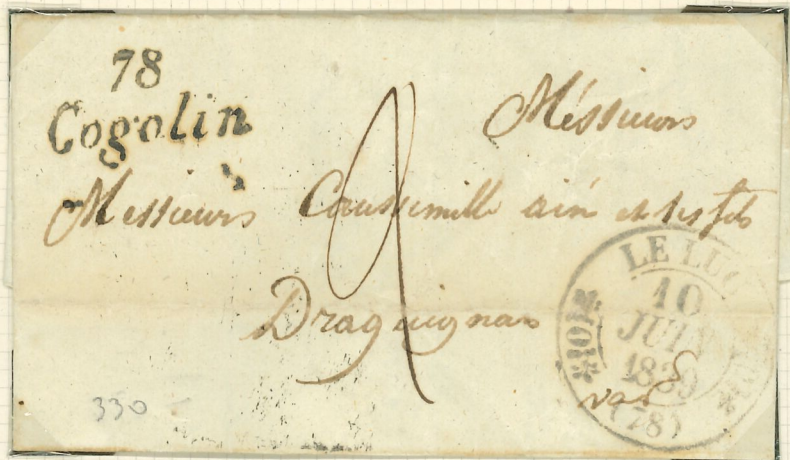 78
Cogolin
Méssieurs
Messieurs Coussimille ainé et ses fils
Draguignan
var
2
LE LUC
10
JUIN
1839
(78)
330